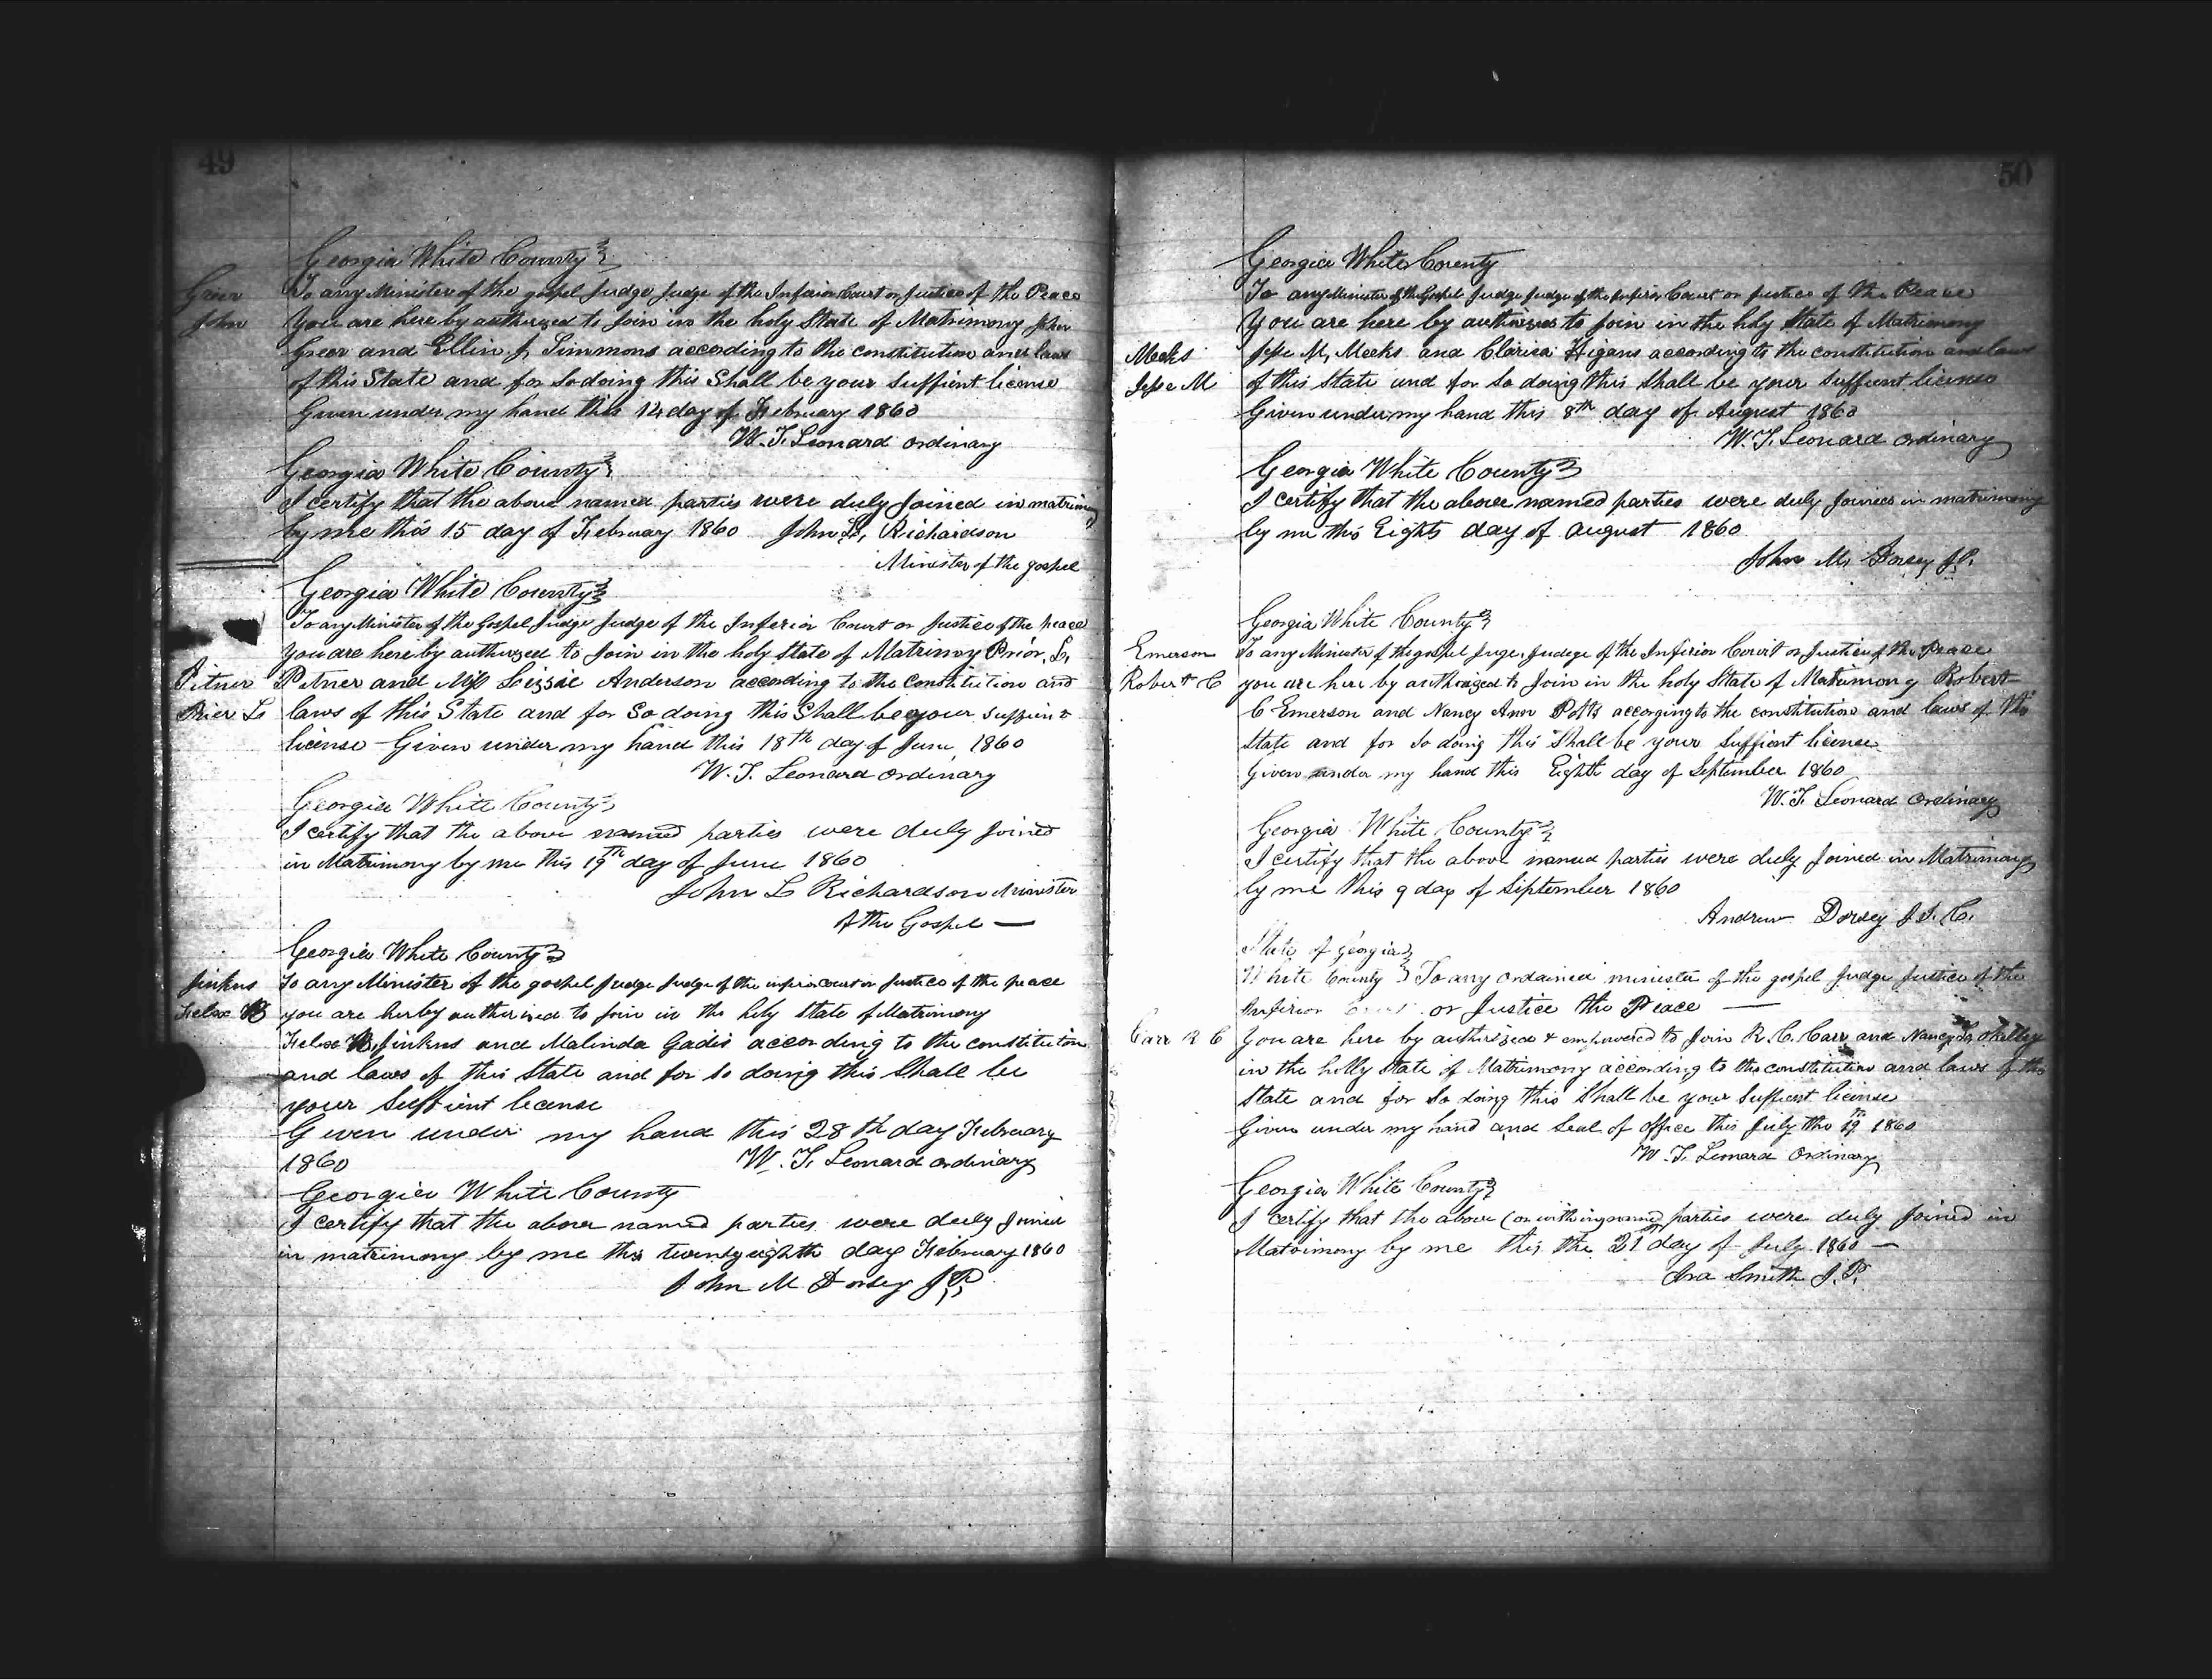 49
Georgia White County
Greer
To any Minister of the gospel Judge Judge of the Inferior Court or Justice of the Peace
John
You are here by authorized to join in the holy State of Matrimony John
Greer and Ellin J, Simmons according to the constitution and laws
of this State and for So doing this Shall be your Suffient license
Given under my hand this 14 day of February 1860
W. T. Leonard ordinary
Georgia White County
I certify that the above named parties were duly Joined in matrimony
by me this 15 day of February 1860 John L, Richardson
Minister of the gospel
Georgia White County
To any Minister of the Gospel Judge Judge of the Inferior Court or Justice of the peace
you are here by authorized to Join in the holy State of Matrimoy Prior, L,
Pitner
Pitner and Miss Lizzie Anderson according to the Constitution and
Prier L
laws of this State and for So doing this Shall be your suffient
license Given under my hand this 18th day of June 1860
W. T. Leonard ordinary
Georgia White County
I certify that the above named parties were duly Joined
in Matrimony by me this 19th day of June 1860
John L Richardson Minister
of the Gospel —
Georgia White County
Jinkns
To any Minister of the gospel Judge Judge of the inferior court or Justice of the peace
Felix
you are herby autherized to Join in the holy State of Matrimony
Felix Jinkns and Malinda Gadis according to the constitution
and laws of this State and for so doing this Shall be
your Suffient license
Given under my hand this 28th day February
1860 W. T. Leonard ordinary
Georgia White County
I certify that the above named parties were duly Joined
in matrimony by me this twenty eighth day February 1860
John M Dorsey J P,
50
Georgia White County
To any Minister of the Gospel Judge Judge of the Inferior Court or Justice of the Peace
You are here by authorized to Join in the holy State of Matrimony
Meeks
M, Meeks and Clarica Higans according to the constitution and laws
M
of this State and for So doing this Shall be your Suffient license
Given under my hand this 8th day of August 1860
W. T. Leonard ordinary
Georgia White County
I certify that the above named parties were duly Joined in matrimony
by me this Eights day of August 1860
John M, Dorsey J.P.
Georgia White County
Emerson
To any Minister of the gospel Juge, Judege of the Inferior Court or Justice of the Peace
Robert C
you are here by authorized to Join in the holy State of Matrimony Robert
C Emerson and Nancy Ann Potts accorging to the constitution and laws of this
State and for So doing this Shall be your Suffient license
Given under my hand this Eighth day of September 1860
W. T. Leonard Ordinary
Georgia White County
I certify that the above named parties were duly Joined in Matrimony
by me this 9 day of September 1860
Andrew Dorsey J. I. C.
State of Georgia
White County To any ordained minister of the gospel Judge Justice of the
Inferior Court or Justice the Peace —
Carr R C
You are here by authorized & empowered to Join R. C. Carr and Nancy
in the holly State of Matrimony according to the constitution and laws of this
State and for So doing this Shall be your Suffient license
Given under my hand and Seal of office this July the 19th 1860
W. T. Leonard Ordinary
Georgia White County
I certify that the above (or within named) parties were duly Joined in
Matrimony by me this the 21st day of July 1860 —
Ira Smith J. P.